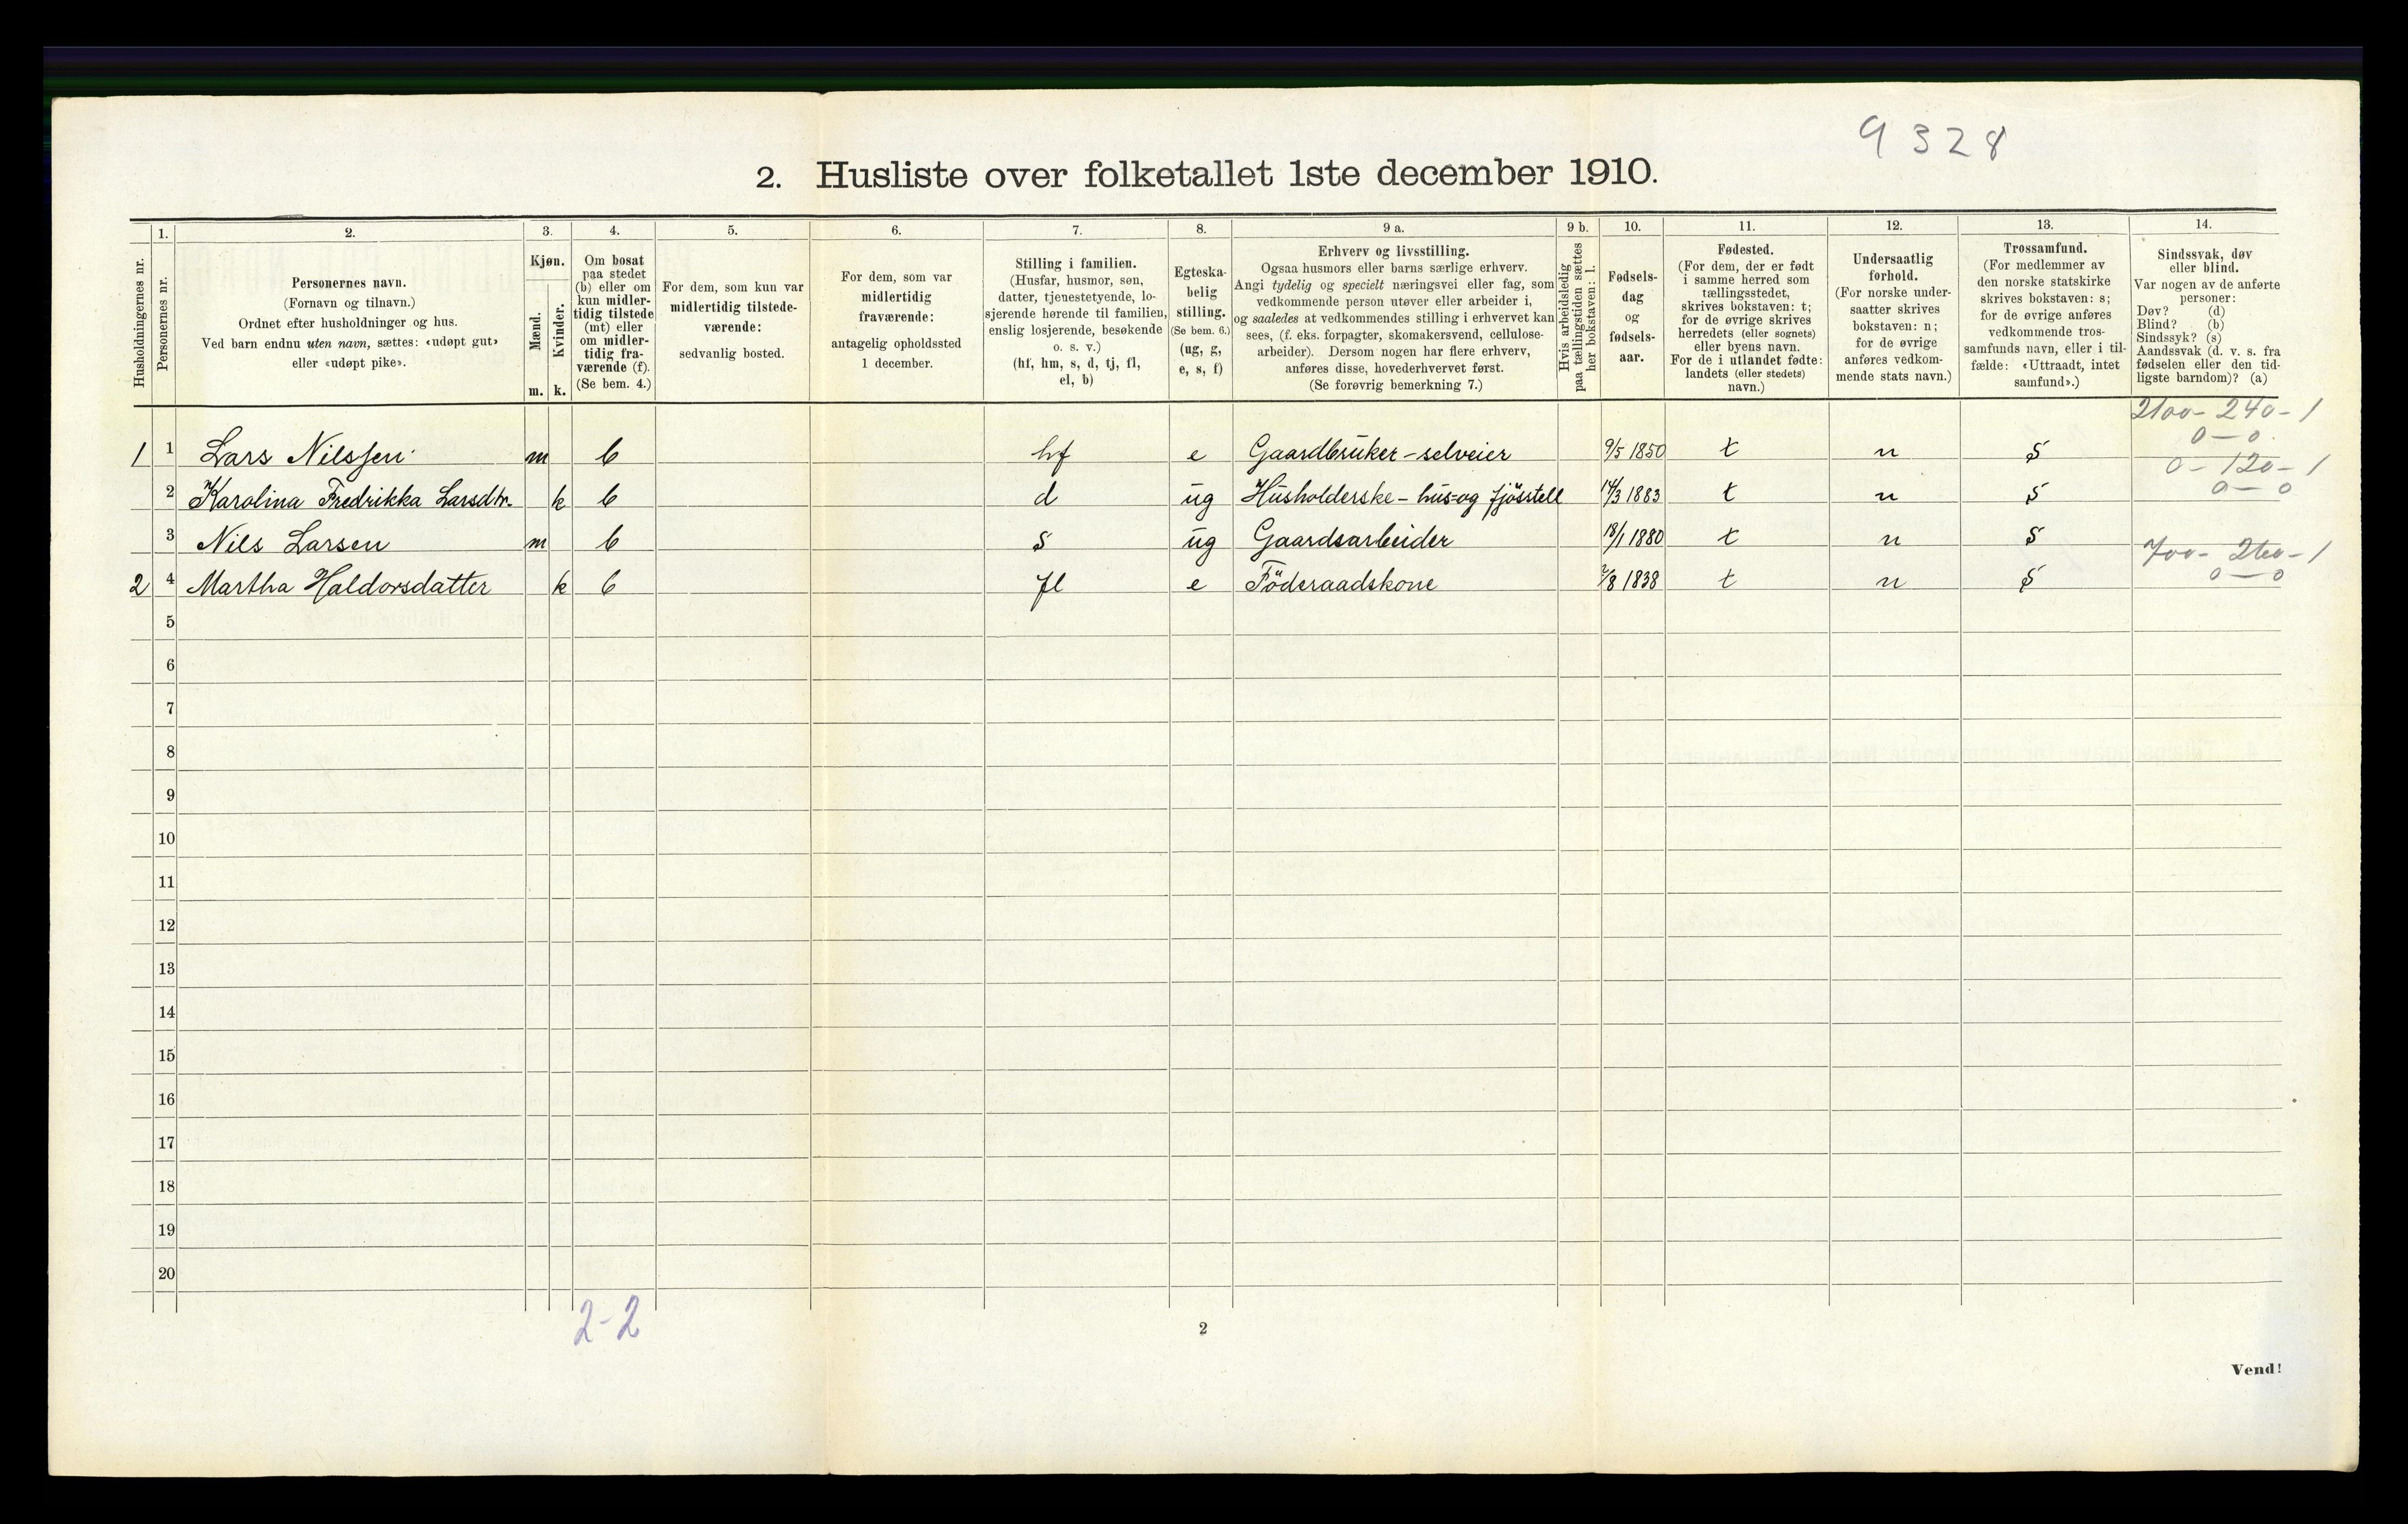 9 3 2 8
2. Husliste over folketallet 1ste december 1910.
Husholdningernes nr.
1.
Personernes nr.
2.
Personernes navn.
(Fornavn og tilnavn.)
Ordnet efter husholdninger og hus.
Ved barn endnu uten navn, sættes: «udøpt gut»
eller «udøpt pike».
3.
Kjøn.
Mænd.
Kvinder.
m. k.
4.
Om bosat
paa stedet
(b) eller om
kun midler-
tidig tilstede
(mt) eller
om midler-
tidig fra-
værende (f).
(Se bem. 4.)
5.
For dem, som kun var
midlertidig tilstede-
værende:
sedvanlig bosted.
6.
For dem, som var
midlertidig
fraværende:
antagelig opholdssted
1 december.
7.
Stilling i familien.
(Husfar, husmor, søn,
datter, tjenestetyende, lo-
sjerende hørende til familien,
enslig losjerende, besøkende
o. s. v.)
(hf, hm, s, d, tj, fl,
el, b)
8.
Egteska-
belig
stilling.
(Se bem. 6.)
(ug, g,
e, s, f)
9 a.
Erhverv og livsstilling.
Ogsaa husmors eller barns særlige erhverv.
Angi tydelig og specielt næringsvei eller fag, som
vedkommende person utøver eller arbeider i,
og saaledes at vedkommendes stilling i erhvervet kan
sees, (f. eks. forpagter, skomakersvend, cellulose-
arbeider). Dersom nogen har flere erhverv,
anføres disse, hovederhvervet først.
(Se forøvrig bemerkning 7.)
9 b.
Hvis arbeidsledig
paa tællingstiden sættes
her bokstaven: l.
10.
Fødsels-
dag
og
fødsels-
aar.
11.
Fødested.
(For dem, der er født
i samme herred som
tællingsstedet,
skrives bokstaven: t;
for de øvrige skrives
herredets (eller sognets)
eller byens navn.
For de i utlandet fødte:
landets (eller stedets)
navn.)
12.
Undersaatlig
forhold.
(For norske under-
saatter skrives
bokstaven: n;
for de øvrige
anføres vedkom-
mende stats navn.)
13.
Trossamfund.
(For medlemmer av
den norske statskirke
skrives bokstaven: s;
for de øvrige anføres
vedkommende tros-
samfunds navn, eller i til-
fælde: «Uttraadt, intet
samfund».)
14.
Sindssvak, døv
eller blind.
Var nogen av de anførte
personer:
Døv? (d)
Blind? (b)
Sindssyk? (s)
Aandssvak (d. v. s. fra
fødselen eller den tid-
ligste barndom)? (a)
2100- 240- 1
0 - 0
1 1 Lars Nilssen m b hf e Gaardbruker - selveier 9/5 1850 t n s
0 - 120 - 1
0 - 0
2 Karolina Fredrikka Larsdtr. k b d ug Husholderske - hus- og fjösstell 14/3 1883 t n s
3 Nils Larsen m b s ug Gaardsarbeider 18/1 1880 t n s
700-
- 1
0 - 0
2 4 Martha Haldorsdatter k b fl e Föderaadskone 7/8 1838 t n s
5
6
7
8
9
10
11
12
13
14
15
16
17
18
19
20
2-2
2
Vend!